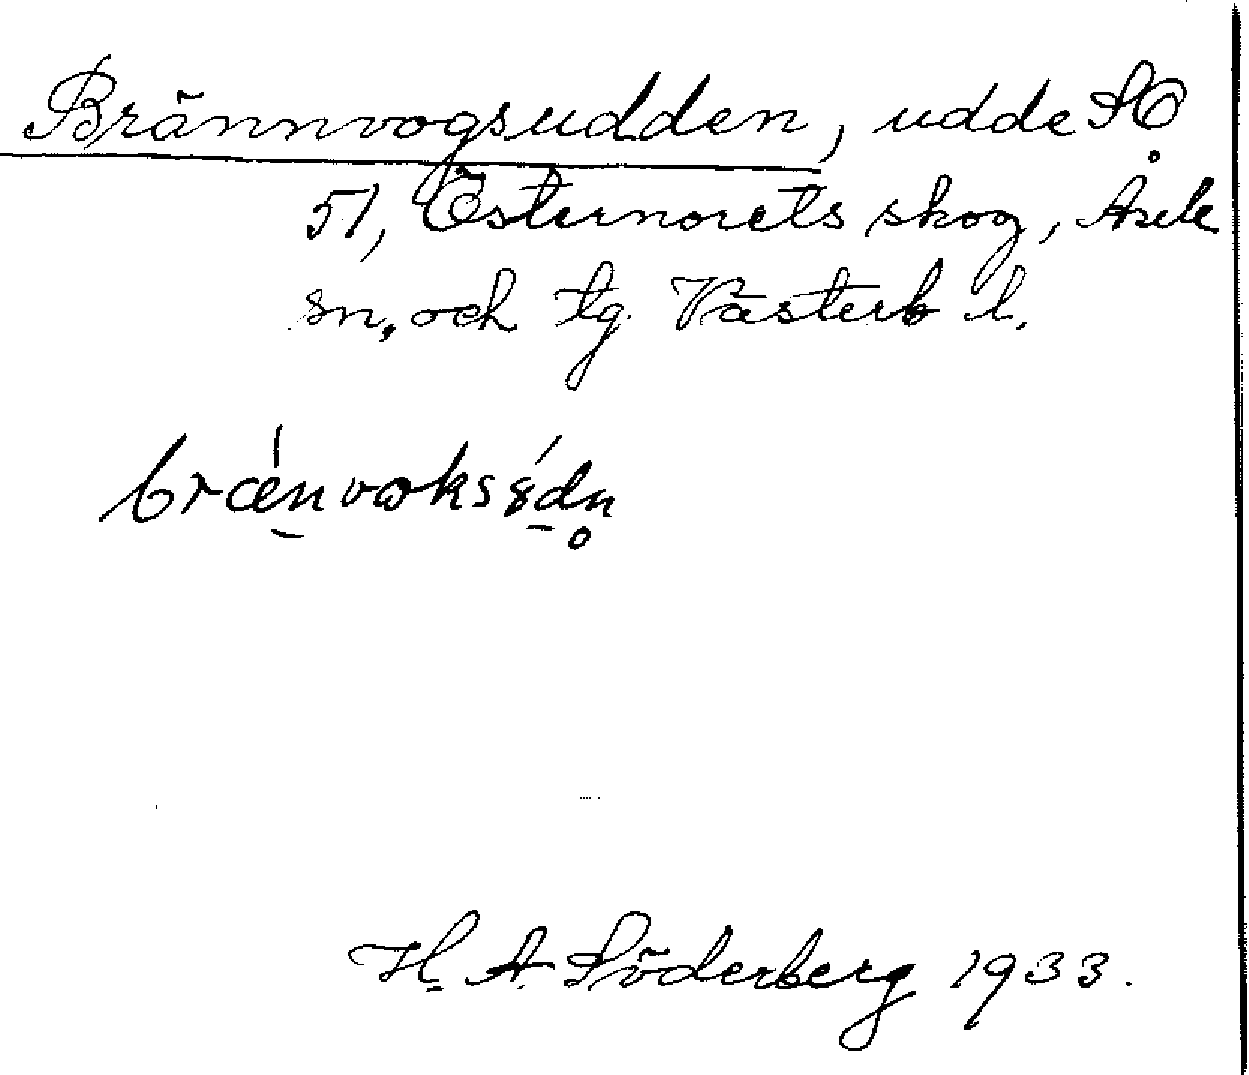 Brännvogsudden, udde SO
51, Östernorets skog, Åsele
sn, och tg. Västerb l.
brǽnvɷksɞ́dn̥
H. A. Söderberg 1933.